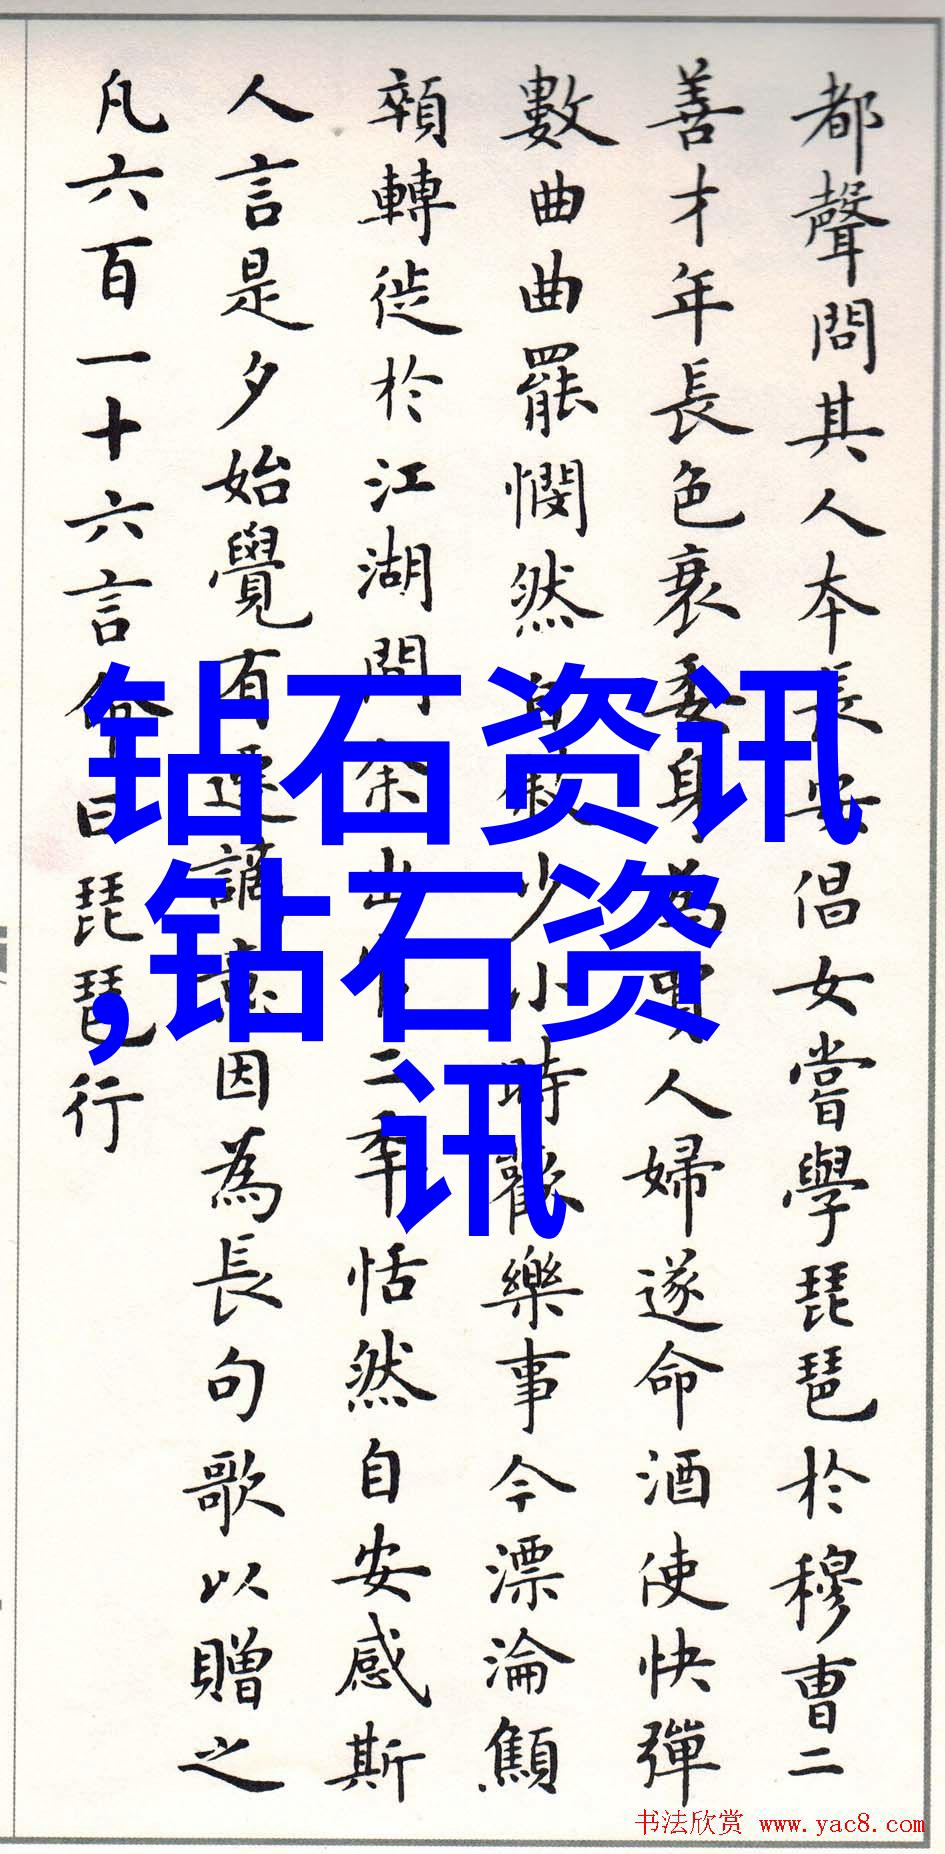 都聲問其人本長安倡女嘗學琵琶於穆曹二
善才年長色衰委身為賈人婦遂命酒使快彈
數曲曲罷憫然自敘少小時歡樂事今漂淪顦
顇轉徙於江湖間余出官二年恬然自安感斯
人言是夕始覺有遷謫意因為長句歌以贈之
凡六百一十六言命曰琵琶行
钻石资讯
,钻石资
讯
书法欣赏 www.yac8.com